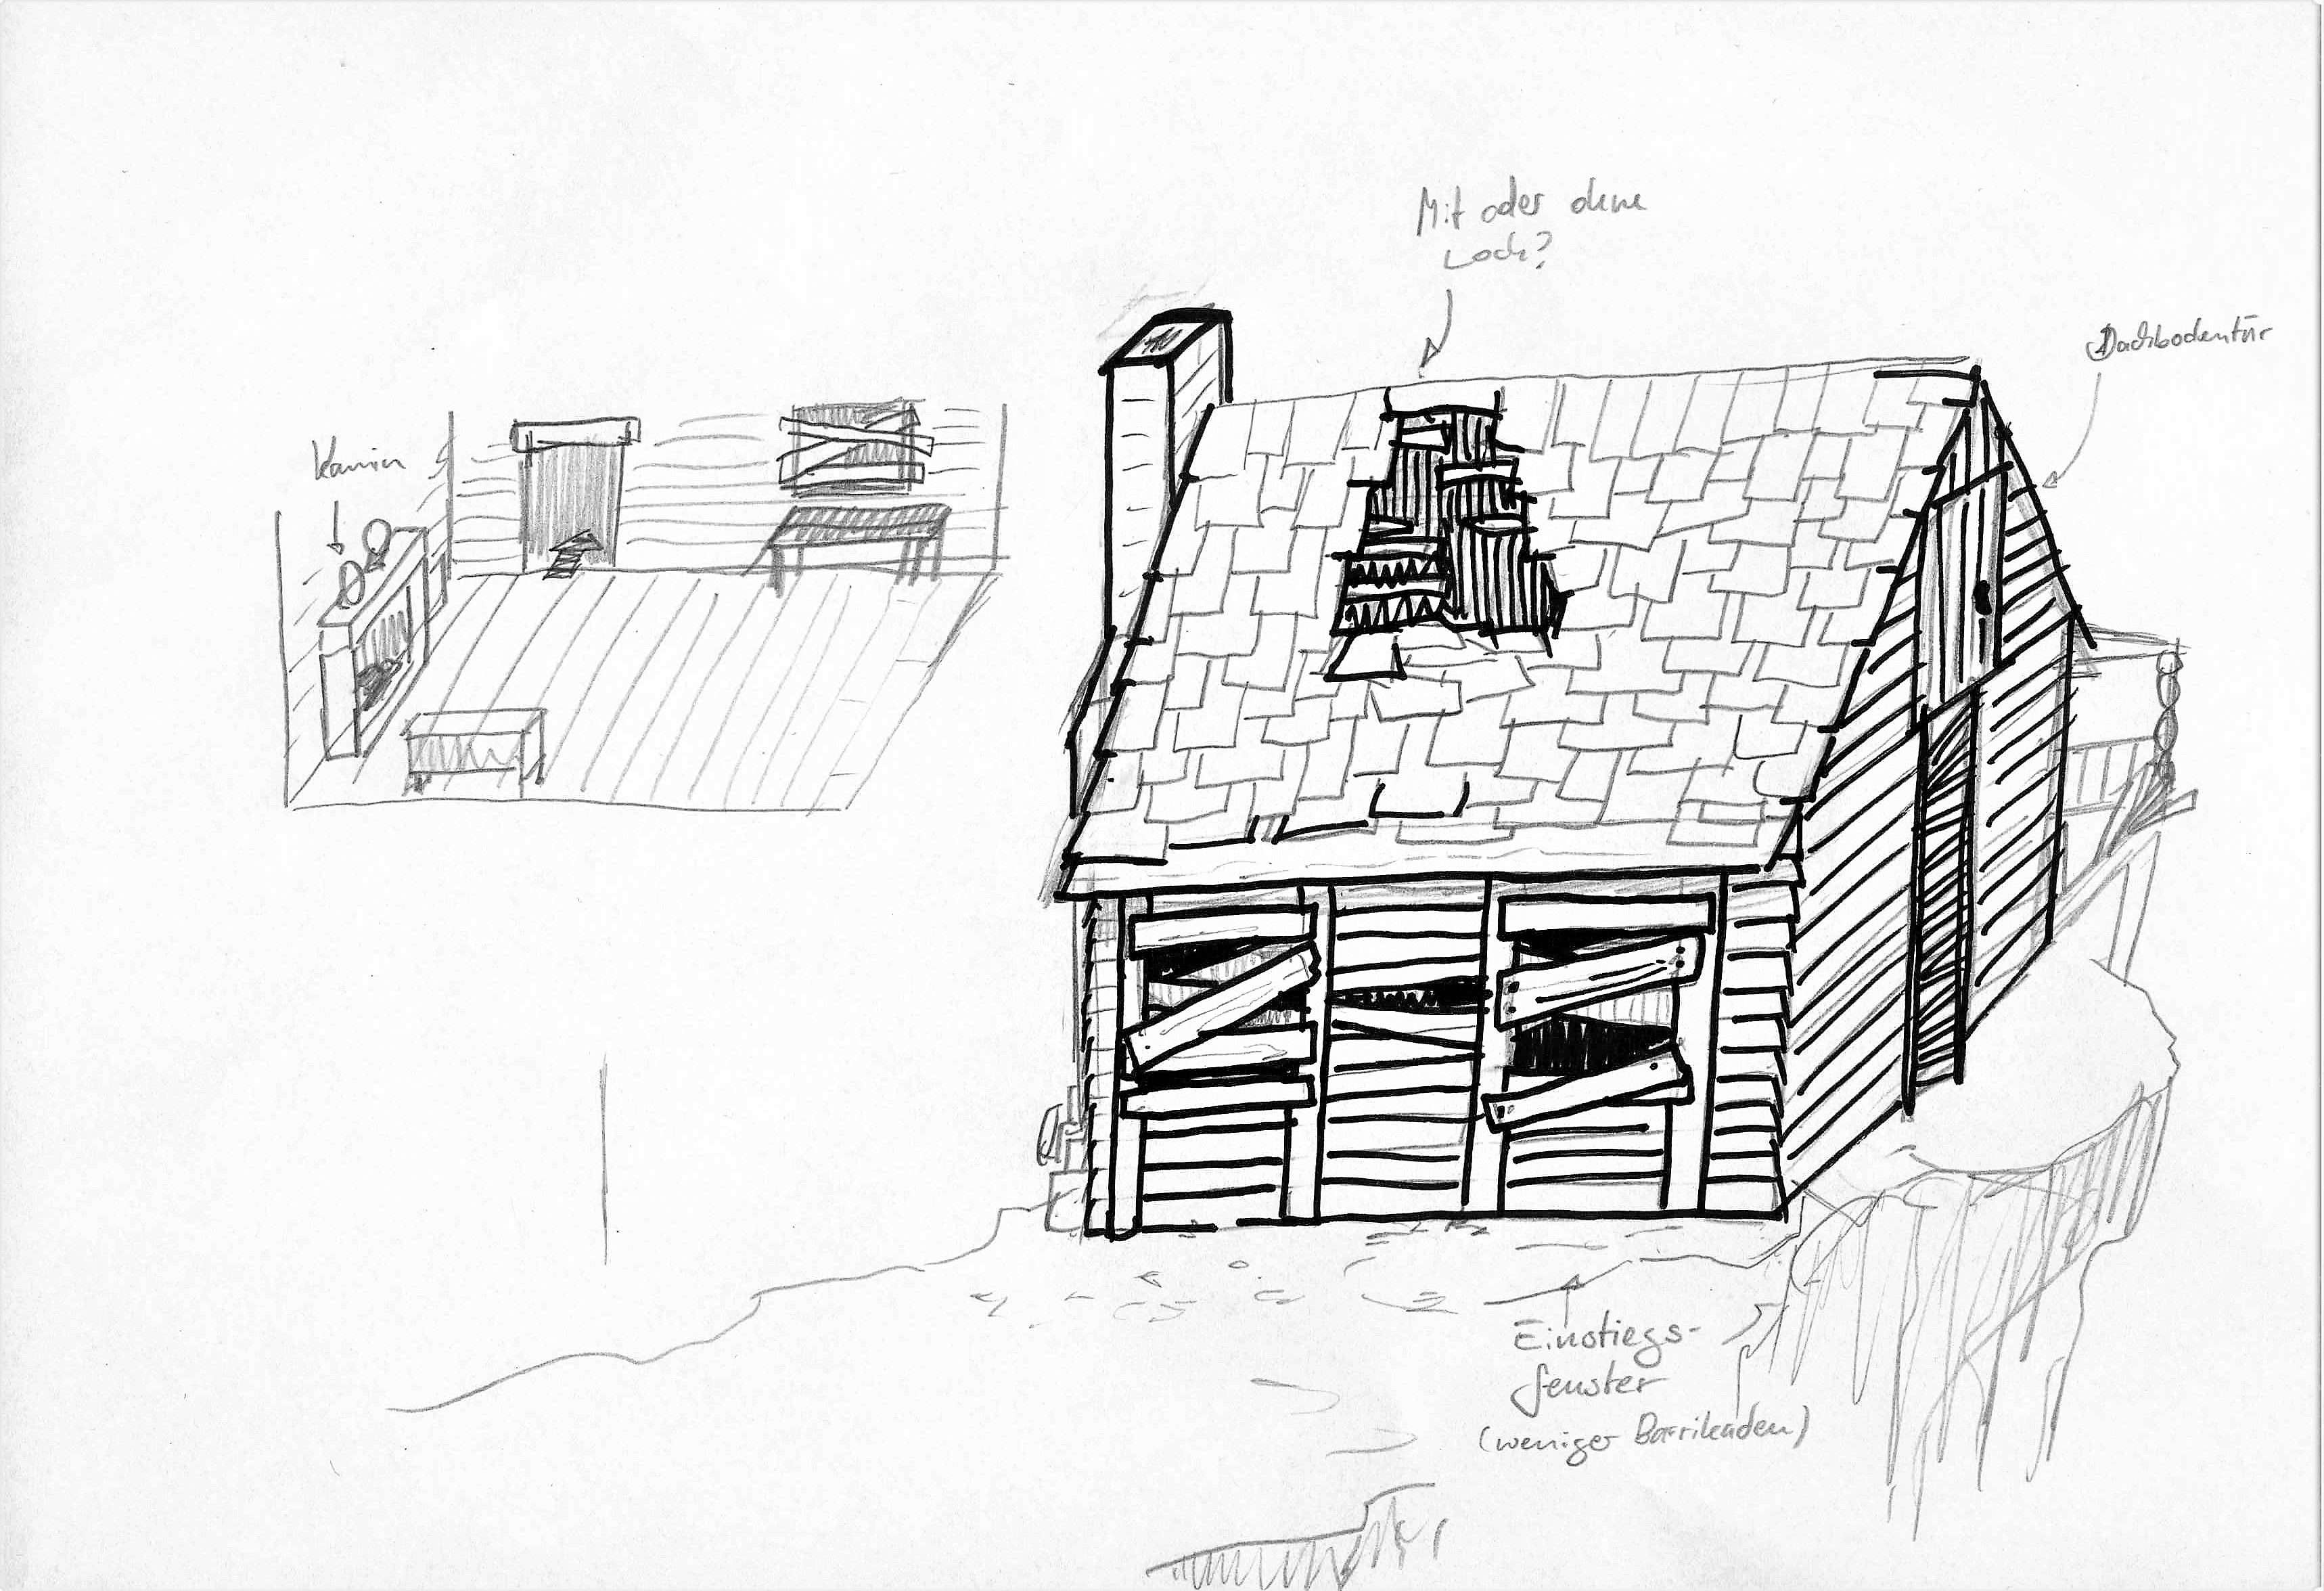 Mit oder ohne
Loch?
Dachbodentür
Kamin
Einstiegs-
fenster
(weniger Barrikaden)